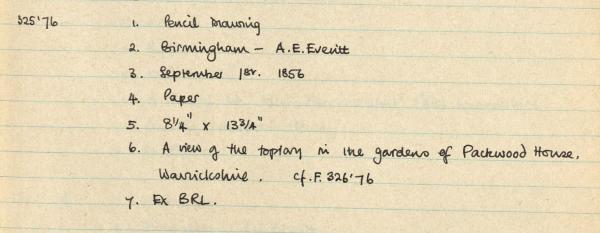 325'76 1. Pencil Drawing
2. Birmingham - A.E. Everitt
3. September 1st. 1856
4. Paper
5. 8 1/4" x 13 3/4"
6. A view of the topiary in the gardens of Packwood House,
Warwickshire. cf. F. 326'76
7. Ex BRL.